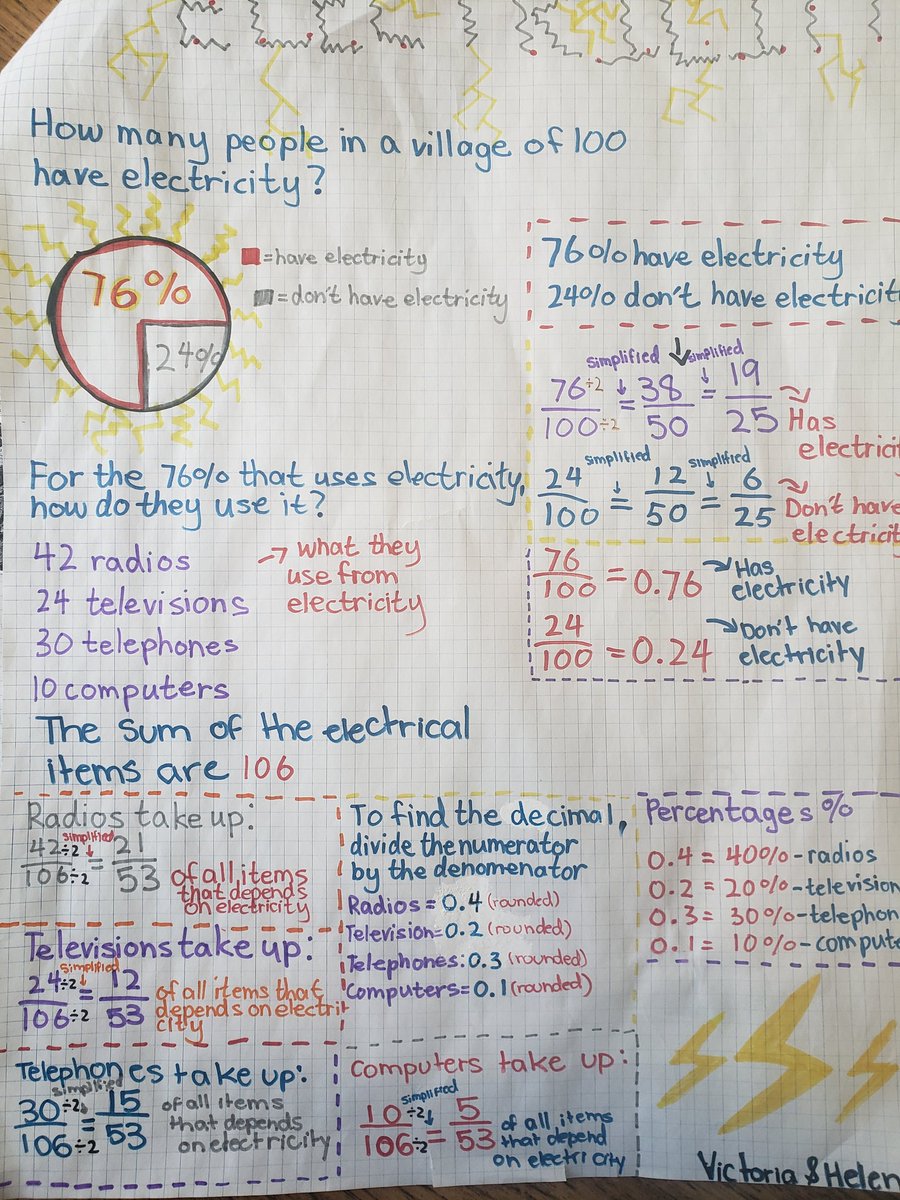 How many people in a village of 100
have electricity?
76%
24%
=have electricity
=don't have electricity
76% have electricity
24% don't have electricit
simplified simplified
76 ÷2 = 38 = 19
100 ÷2 50 25
Has
electricit
simplified simplified
24 = 12 = 6
100 50 25
Don't have
electricit
76/100 = 0.76 Has
electricity
24/100 = 0.24 Don't have
electricity
For the 76% that uses electricity,
how do they use it?
42 radios
24 televisions
30 telephones
10 computers
what they
use from
electricity
The sum of the electrical
items are 106
Radios take up:
simplified
42÷2 = 21
106÷2 53
of all items
that depends
on electricity
Televisions take up:
simplified
24÷2 = 12
106÷2 53
of all items that
depends on electri
city
Telephones take up:
simplified
30÷2 = 15
106÷2 53
of all items
that depends
on electricity
To find the decimal,
divide the numerator
by the denomenator
Radios = 0.4 (rounded)
Television=0.2 (rounded)
Telephones: 0.3 (rounded)
Computers= 0.1 (rounded)
Computers take up:
simplified
10÷2 = 5
106÷2 53
of all items
that depend
on electricity
Percentages %
0.4 = 40%-radios
0.2 = 20%-television
0.3 = 30%-telephon
0.1 = 10%-compute
Victoria & Helen